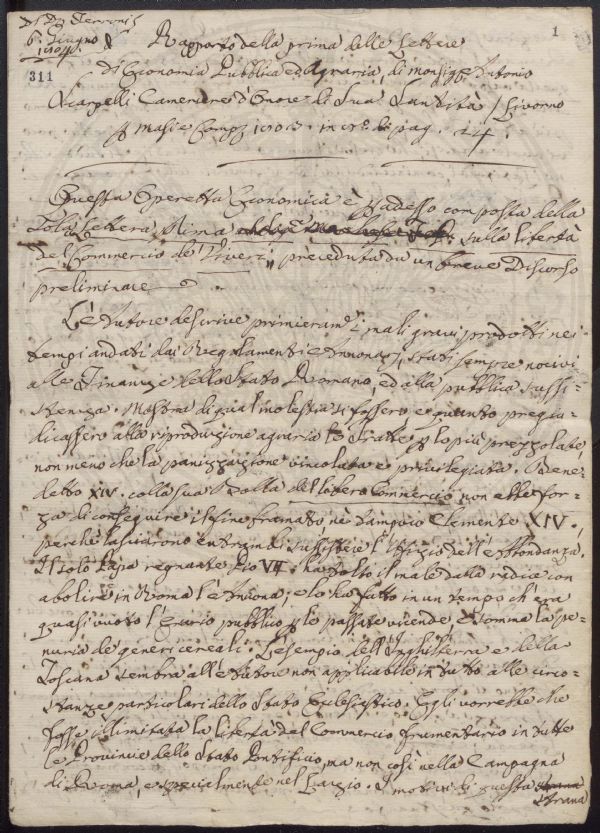 6. Giugno
1804.
1
311
Rapporto della prima delle Lettere
di Economia Pubblica ed Agraria, di monsig.r Antonio
Scarpelli Cameriere d'Onore di Sua Santità / Livorno
Masi e Comp. 1803. in 8.º di pag. 24.
Questa Operetta Economica è p. adesso composta della
sola Lettera Prima sulla libertà
de' Commercio de' Viveri, preceduta da un breve Discorso
preliminare.
L'Autore descrive primieram.e i mali gravi prodotti nei
tempi andati dai Regolamenti Annonarj, stati sempre nocivi
alle Finanze dello Stato Romano, ed alla pubblica sussi-
stenza. Mostra di qual molestia si fossero e quanto pregiu-
dicassero alla riproduzione agraria le Tratte p. lo più prezzolate
non meno che la panizzazione vincolata e privilegiata. Bene-
detto XIV. colla sua Bolla del libero Commercio non ebbe for-
za di conseguire il fine bramato, nè tampoco Clemente XIV.,
perchè lasciarono entrambi sussistere l'Ufizio dell'Abbondanza.
Il solo Papa regnante Pio VII. ha tolto il male dalla radice con
abolire in Roma l'Annona; e lo ha fatto in un tempo ch'era
quasi vuoto l'Erario pubblico p. le passate vicende e somma la pe-
nuria de' generi cereali. L'esempio dell'Inghilterra e della
Toscana sembra all'Autore non applicabile in tutto alle circo-
stanze particolari dello Stato Eclesiastico. Egli vorrebbe che
fosse illimitata la libertà del Commercio frumentario in tutte
le Provincie dello Stato Pontificio, ma non così nella Campagna
di Roma, e specialmente nel Lazio. I motivi di questa strana